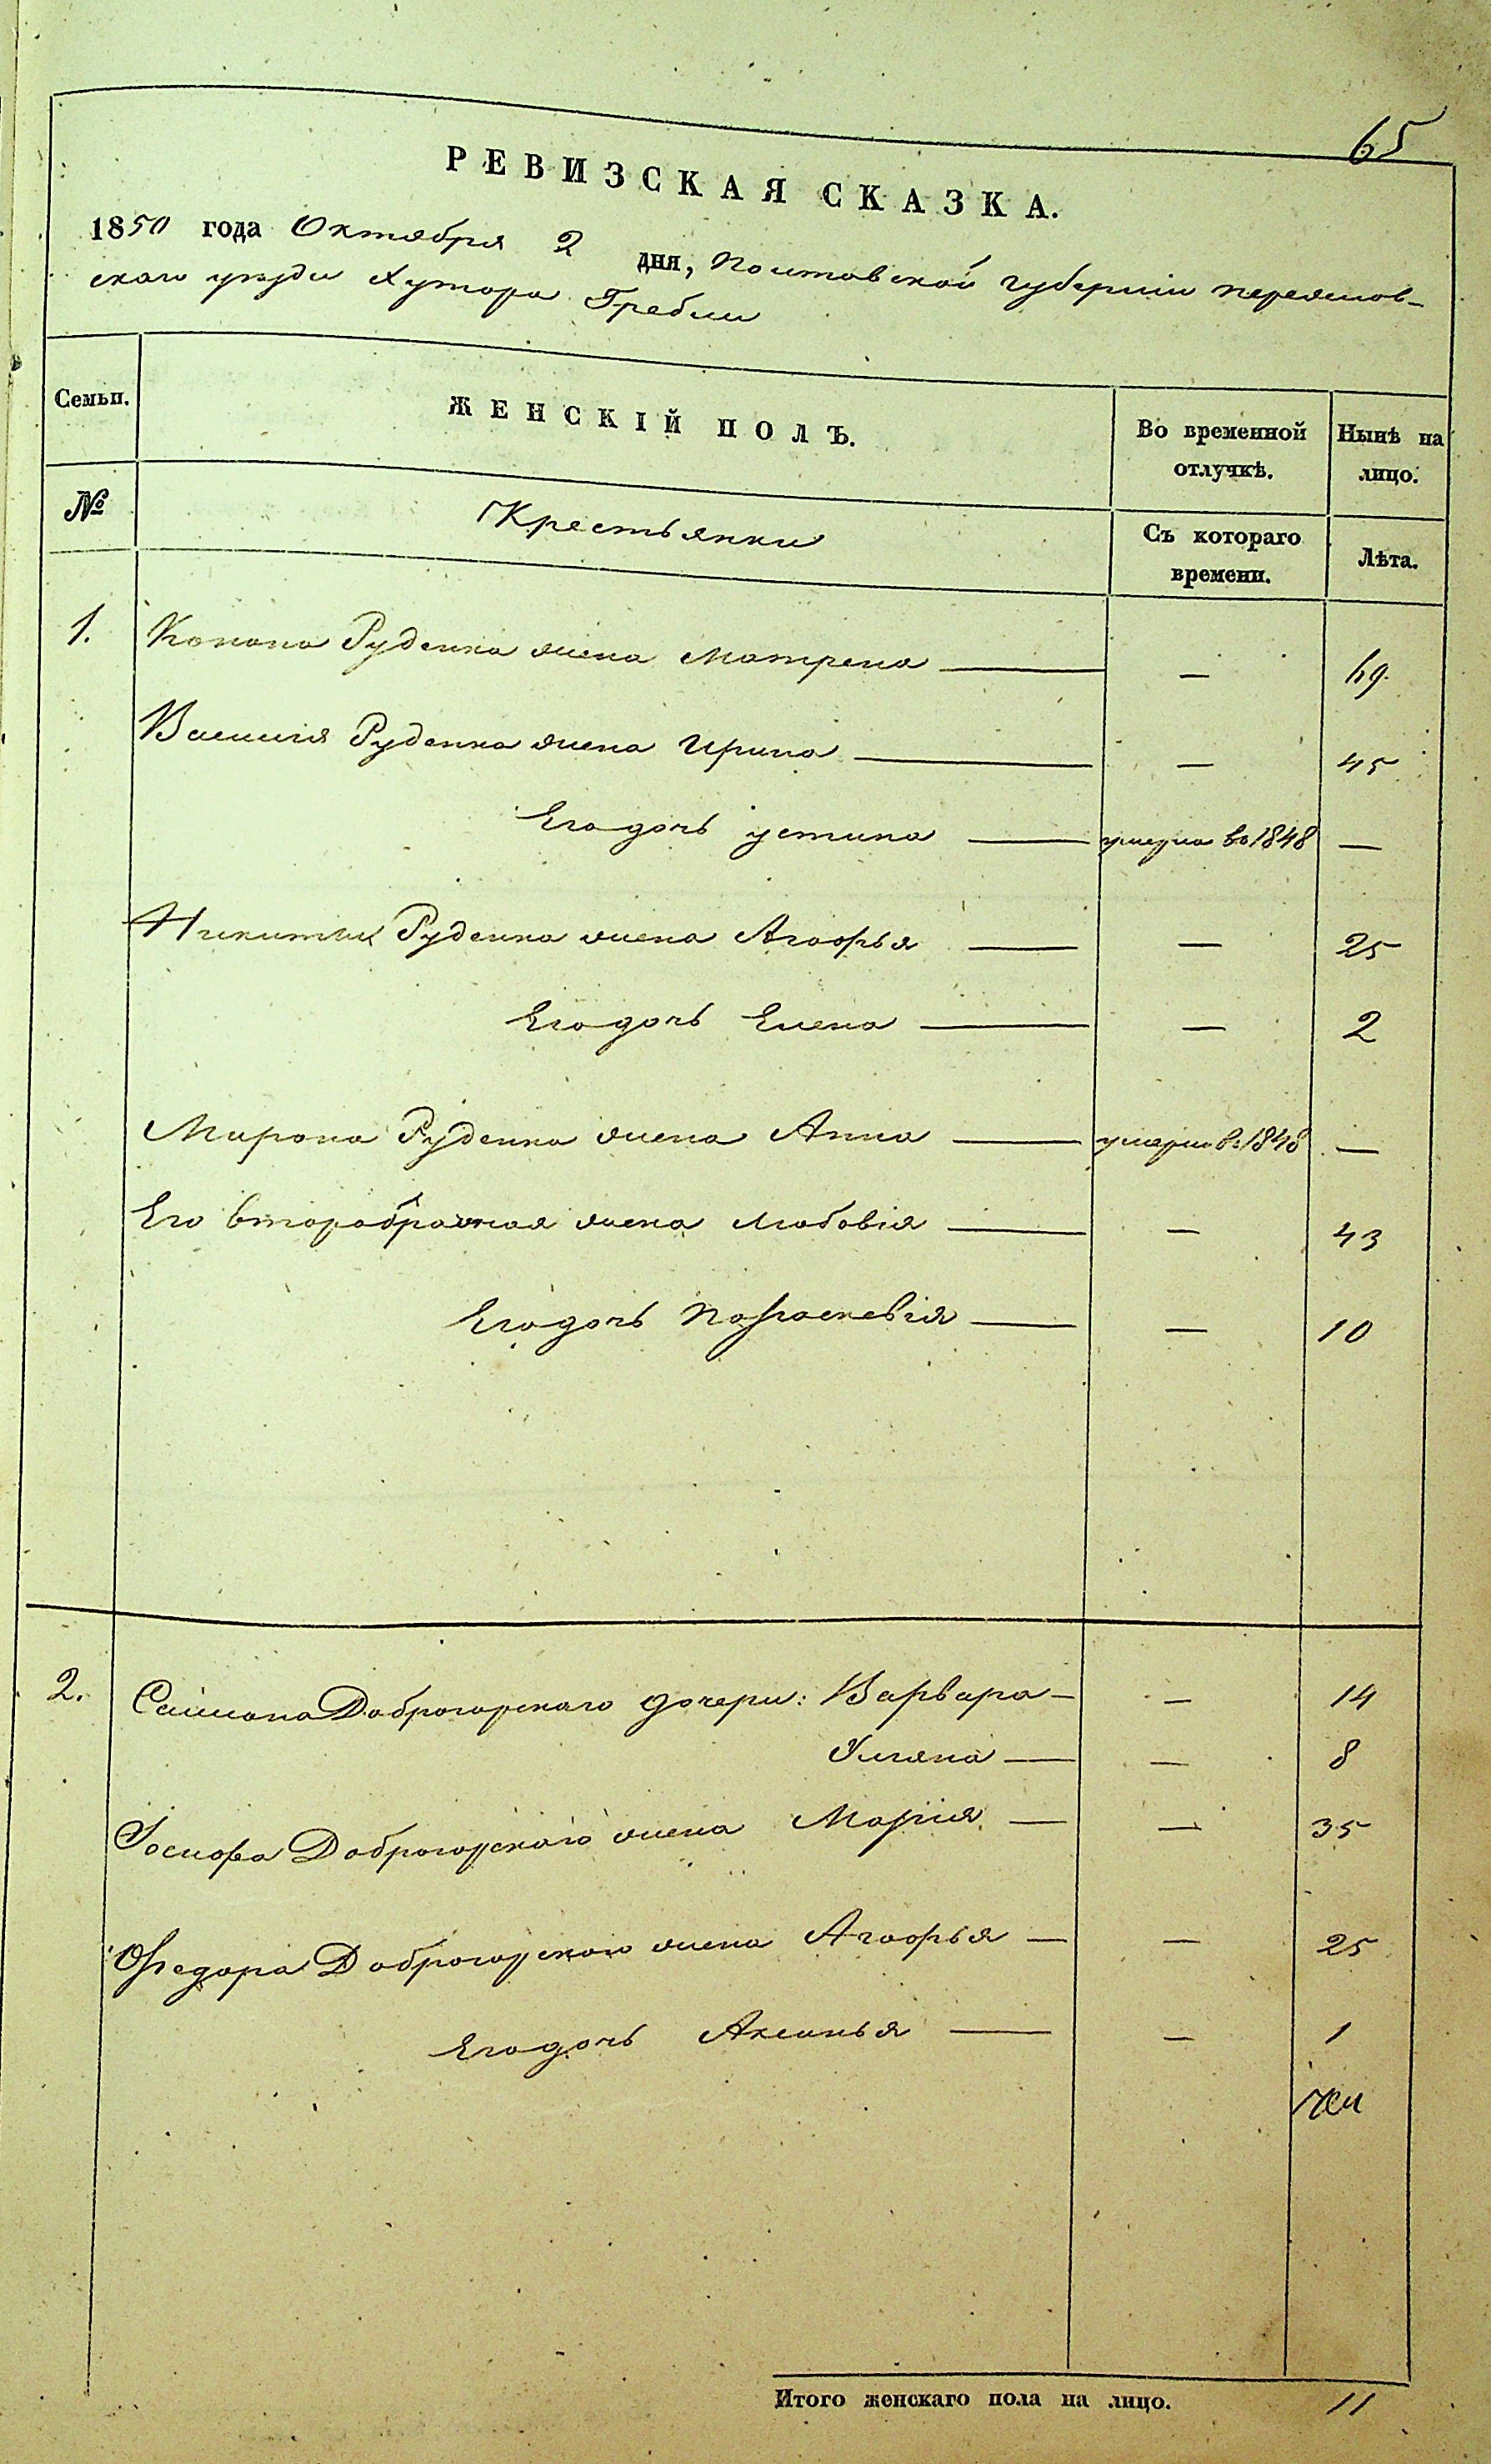 65
РЕВИЗСКАЯ СКАЗКА.
1850 года Октября 2 дня, Полтавской губерніи переяслов-
скаго уѣзда Хутора Гребли
Семьи. ЖЕНСКІЙ ПОЛЪ. Во временной отлучкѣ. Нынѣ на лицо.
№ Крестьянки Съ котораго времени. Лѣта.
1. Конона Руденка жена Матрена — — 69
Василія Руденка жена Ирина — — 45
Его дочь Устина — умерла въ 1848 —
Никиты Руденка жена Агафья — — 25
Его дочь Елена — — 2
Мирона Руденка жена Анна — умерла въ 1848 —
Его вторабрачная жена Любовія — — 43
Его дочь Параскевія — — 10
2. Симона Доброгорскаго дочери: Варвара — — 14
Ульяна — — 8
Іосифа Доброгорскаго жена Марія — — 35
Федора Доброгорскаго жена Агафья — — 25
Его дочь Аксинья — — 1
Итого женскаго пола на лицо. 11